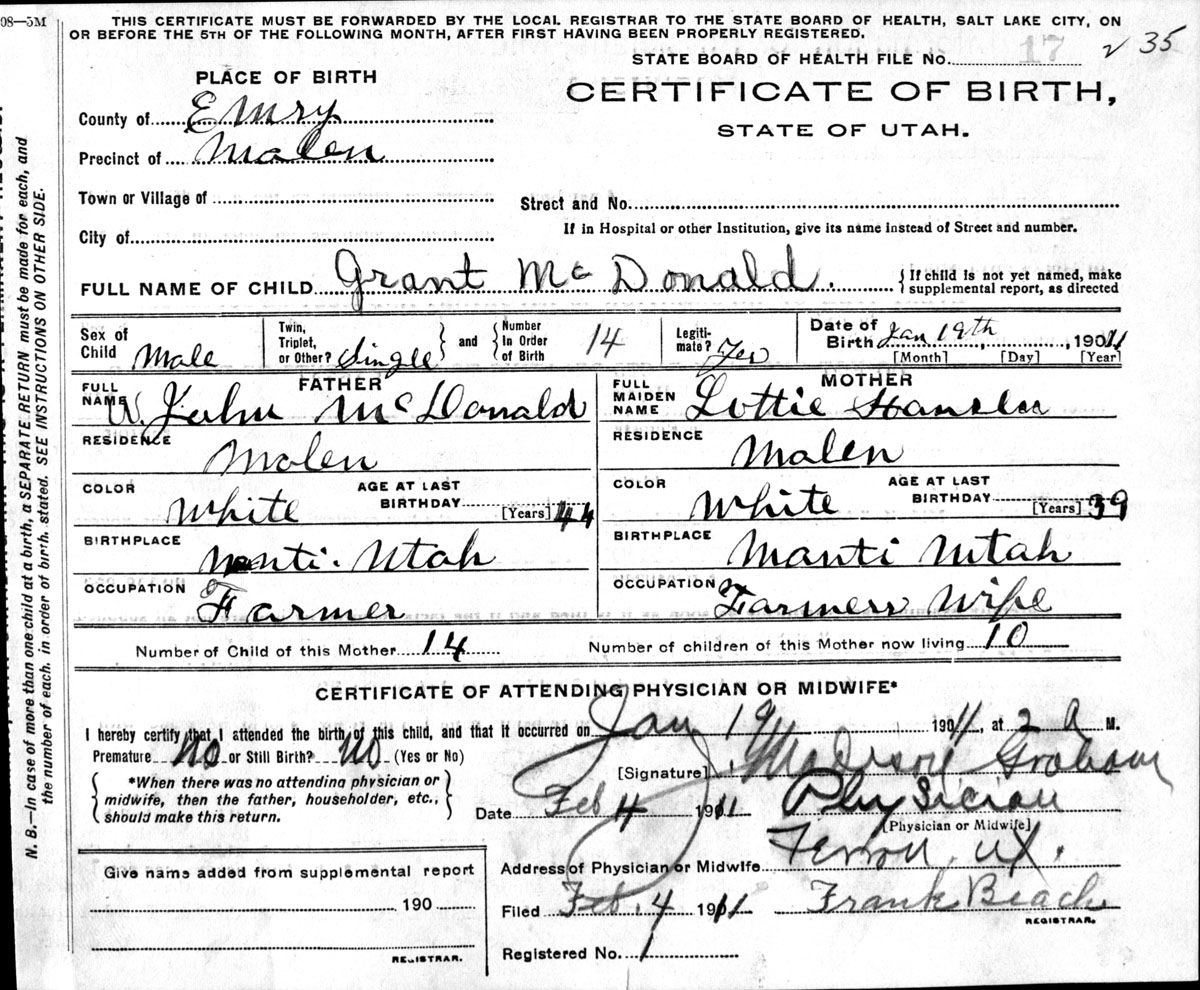 08—5M
THIS CERTIFICATE MUST BE FORWARDED BY THE LOCAL REGISTRAR TO THE STATE BOARD OF HEALTH, SALT LAKE CITY, ON
OR BEFORE THE 5TH OF THE FOLLOWING MONTH, AFTER FIRST HAVING BEEN PROPERLY REGISTERED.
STATE BOARD OF HEALTH FILE No. 17 35
PLACE OF BIRTH
CERTIFICATE OF BIRTH,
STATE OF UTAH.
County of Emry
Precinct of Molen
Town or Village of
Street and No.
City of
If in Hospital or other Institution, give its name instead of Street and number.
FULL NAME OF CHILD Grant McDonald. {If child is not yet named, make
supplemental report, as directed
Sex of Child Male Twin, Triplet, or Other? Single } and { Number In Order of Birth 14 Legiti-mate? Yes Date of Birth Jan 19th, 1911
[Month] [Day] [Year]
FATHER
FULL NAME W. John McDonald
RESIDENCE Molen
COLOR White AGE AT LAST BIRTHDAY 44 [Years]
BIRTHPLACE Manti. Utah
OCCUPATION Farmer
MOTHER
FULL MAIDEN NAME Lottie
RESIDENCE Molen
COLOR White AGE AT LAST BIRTHDAY 39 [Years]
BIRTHPLACE Manti Utah
OCCUPATION Farmers Wife
Number of Child of this Mother 14 Number of children of this Mother now living 10
CERTIFICATE OF ATTENDING PHYSICIAN OR MIDWIFE*
I hereby certify that I attended the birth of this child, and that it occurred on Jan 19 1911, at 2 A M.
Premature No or Still Birth? No (Yes or No)
[Signature] Graham
{ *When there was no attending physician or
midwife, then the father, householder, etc.,
should make this return. }
Date Feb 4 1911 Physician
[Physician or Midwife]
Address of Physician or Midwife Ferron, Ut.
Filed Feb. 4 1911 Frank Beach
REGISTRAR.
Registered No. 1
Give name added from supplemental report
190
REGISTRAR.
N. B.—In case of more than one child at a birth, a SEPARATE RETURN must be made for each, and
the number of each, in order of birth, stated. SEE INSTRUCTIONS ON OTHER SIDE.